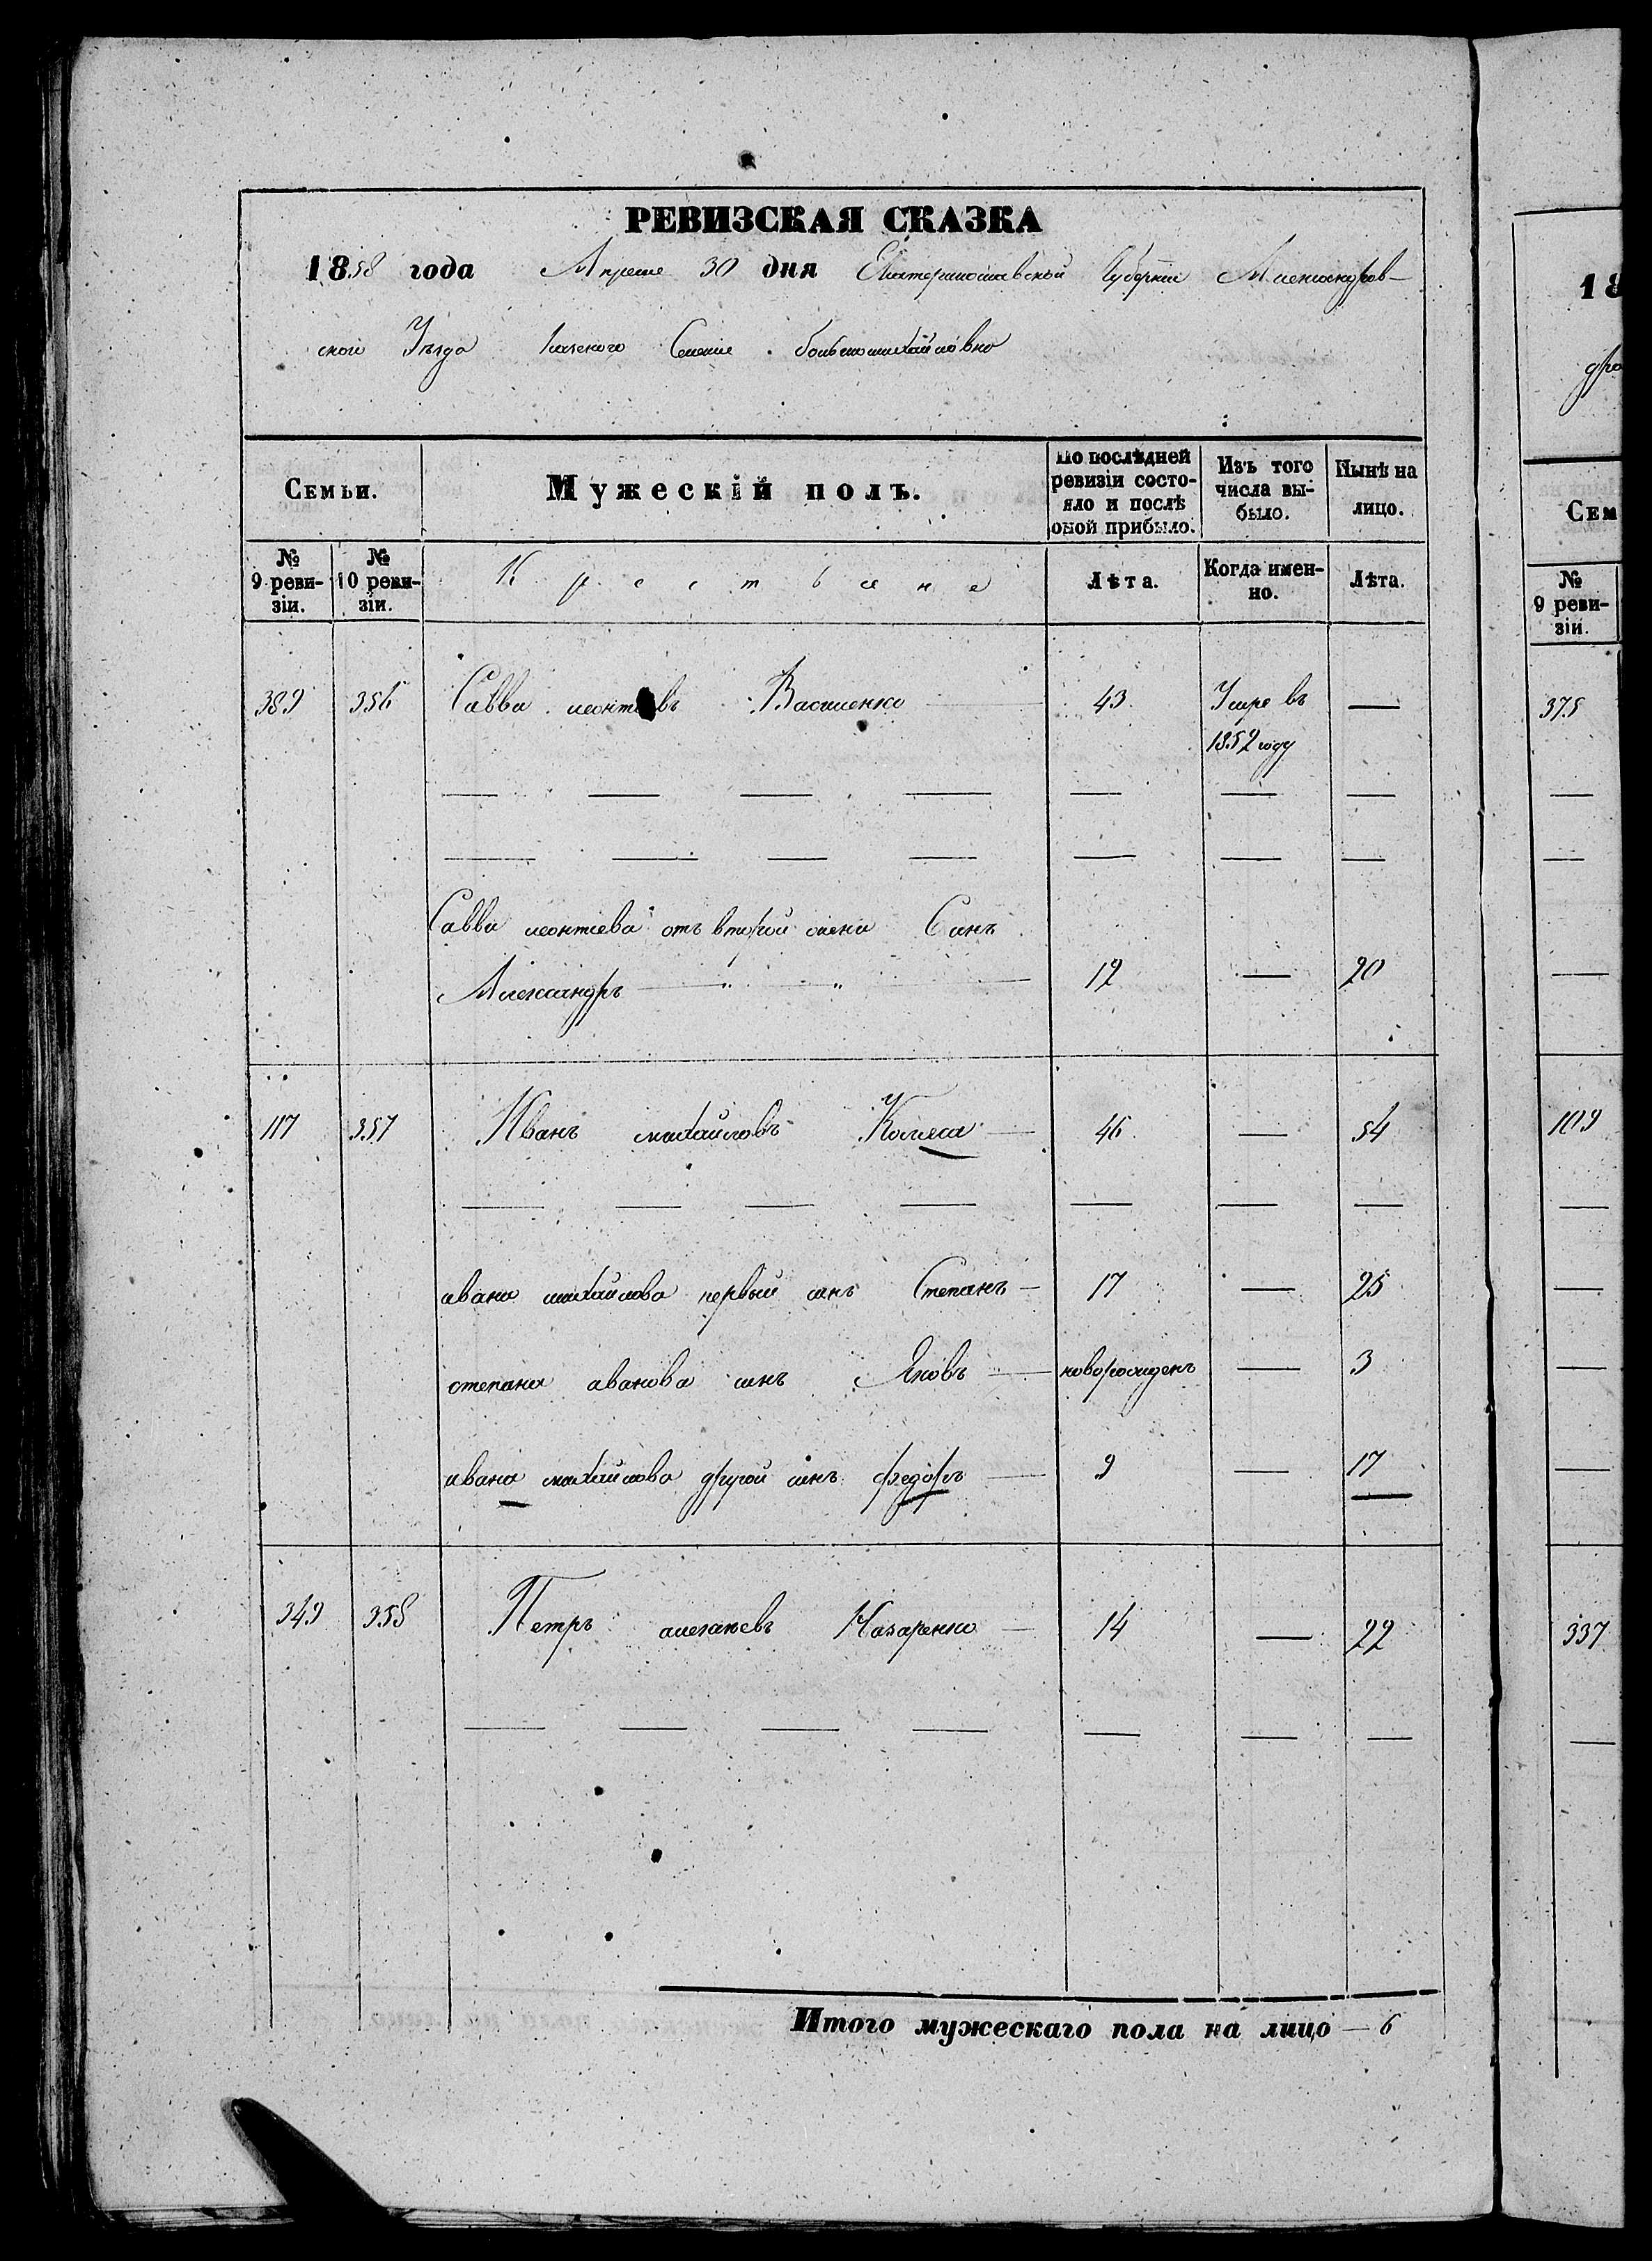 РЕВИЗСКАЯ СКАЗКА
1858 года Апреля 30 дня Екатеринославской Губернии Александров-
ской Уезда Села
Семьи. Мужескій полъ. По послѣдней ревизіи состо-яло и послѣ оной прибыло. Изъ того числа вы-было. Нынѣ на лицо.
№ 9 реви-зіи. № 10 реви-зіи. Крестьяне Лѣта. Когда имен-но. Лѣта.
389 356 Савва леонтьевъ Василенко 43 Умре въ —
1852 году
Савви леонтіева отъ второй жени Синъ
Александръ 12 — 20
117 357 Иванъ михайловъ Колиса 46 — 54
ивана михайлова первый синъ Степанъ 17 — 25
степана иванова синъ Яковъ новорожденъ — 3
ивана михайлова другой синъ федоръ 9 — 17
349 358 Петръ Назаренко 14 — 22
Итого мужескаго пола на лицо — 6
18
Сем
№ 9 реви-зіи.
375
109
337